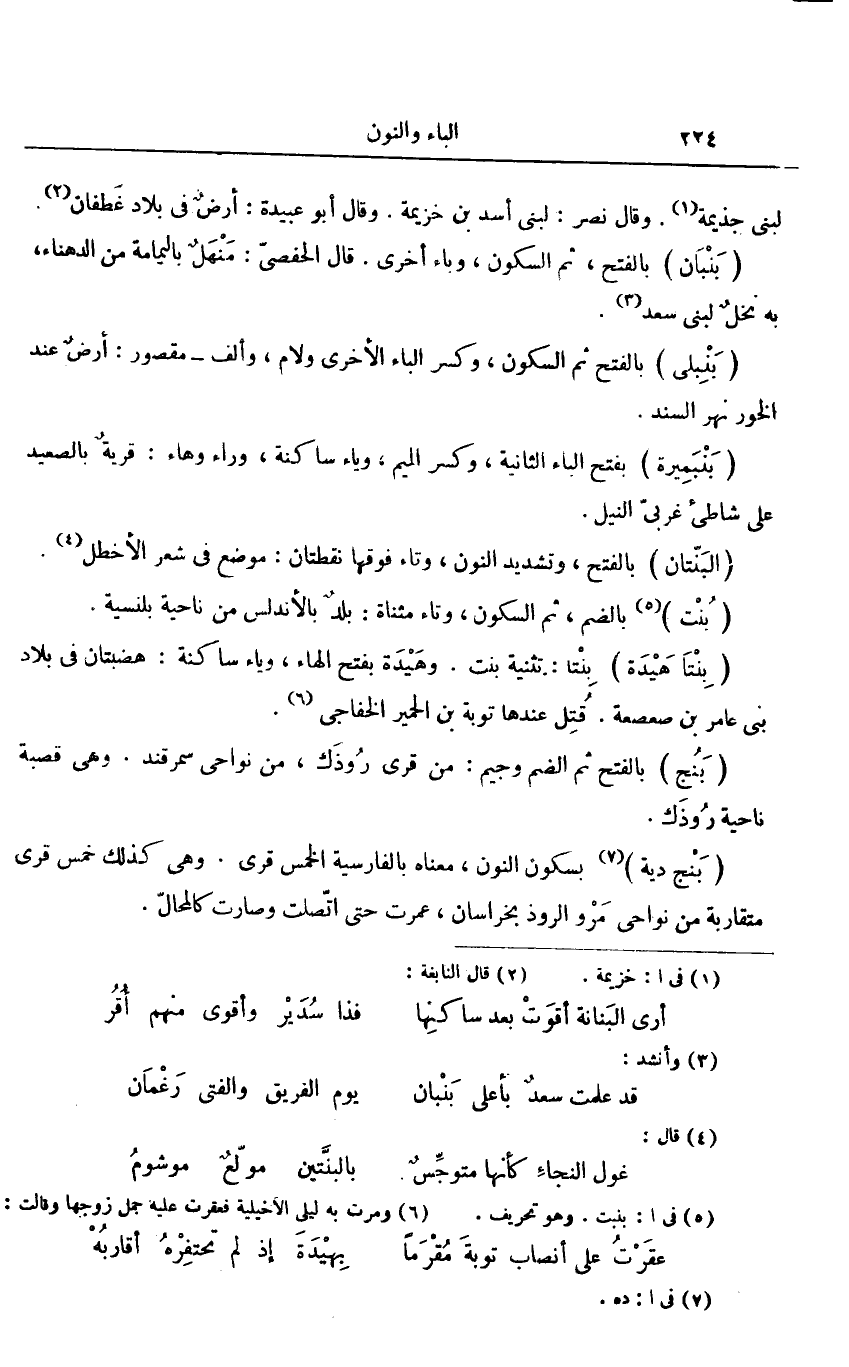 ٢٢٤
الباء والنون
لبنى جذيمة(١) . وقال نصر : لبنى أسد بن خزيمة . وقال أبو عبيدة : أرضٌ فى بلاد غَطفان(٢) .
( بَنْبَان ) بالفتح ، ثم السكون ، وباء أخرى . قال الحفصىّ : مَنْهَلٌ باليمامة من الدهناء،
به نخلٌ لبنى سعد(٣) .
( بَنْبِلى ) بالفتح ثم السكون ، وكسر الباء الأخرى ولام ، وألف ــ مقصور : أرضٌ عند
الخور نهر السند .
( بَنْبَمِيرة ) بفتح الباء الثانية ، وكسر الميم ، وياء ساكنة ، وراء وهاء : قريةٌ بالصعيد
على شاطئ غربىّ النيل .
( البَنّتان ) بالفتح ، وتشديد النون ، وتاء فوقها نقطتان : موضع فى شعر الأخطل(٤) .
( بُنْت )(٥) بالضم ، ثم السكون ، وتاء مثناة : بلدٌ بالأندلس من ناحية بلنسية .
( بِنْتَا هَيْدَة ) بِنْتا : تثنية بنت . وهَيْدَة بفتح الهاء ، وياء ساكنة : هضبتان فى بلاد
بنى عامر بن صعصعة . قُتِل عندها توبة بن الحمير الخفاجى(٦) .
( بَنُج ) بالفتح ثم الضم وجيم : من قرى رُوذَك ، من نواحى سمرقند . وهى قصبة
ناحية رُوذَك .
( بَنْج دية )(٧) بسكون النون ، معناه بالفارسية الخمس قرى . وهى كذلك خمس قرى
متقاربة من نواحى مَرْو الروذ بخراسان ، عمرت حتى اتّصلت وصارت كالمحالّ .
(١) فى ا : خزيمة . (٢) قال النابغة :
أرى البَنانة أقوَتْ بعد ساكنِها فذا سُدَيْر وأقوى منهم أُقُرُ
(٣) وأنشد :
قد علمت سعدٌ بأعلى بَنْبان يوم الفريق والفتى رَغْمَان
(٤) قال :
غول النجاءِ كأنها متوجِّسٌ بالبنَّتين مولّعٌ موشومُ
(٥) فى ا : بنبت . وهو تحريف . (٦) ومرت به ليلى الأخيلية فعقرت علية جمل زوجها وقالت :
عقَرْتُ على أنصاب توبةَ مُقْرَماً بِهِيْدَةَ إذ لم تحتفِرْهُ أقاربُهْ
(٧) فى ا : ده .